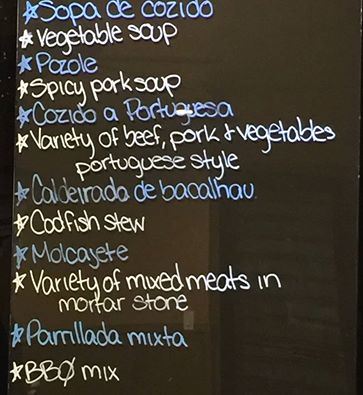 ★Sopa de cozido
★Vegetable soup
★Pozole
★Spicy pork soup
★Cozido a Portuguesa
★Variety of beef, pork + vegetables
portuguese style
★Caldeirada de bacalhau
★Codfish stew
★Molcajete
★Variety of mixed meats in
mortar stone
★Parrillada mixta
★BBQ mix